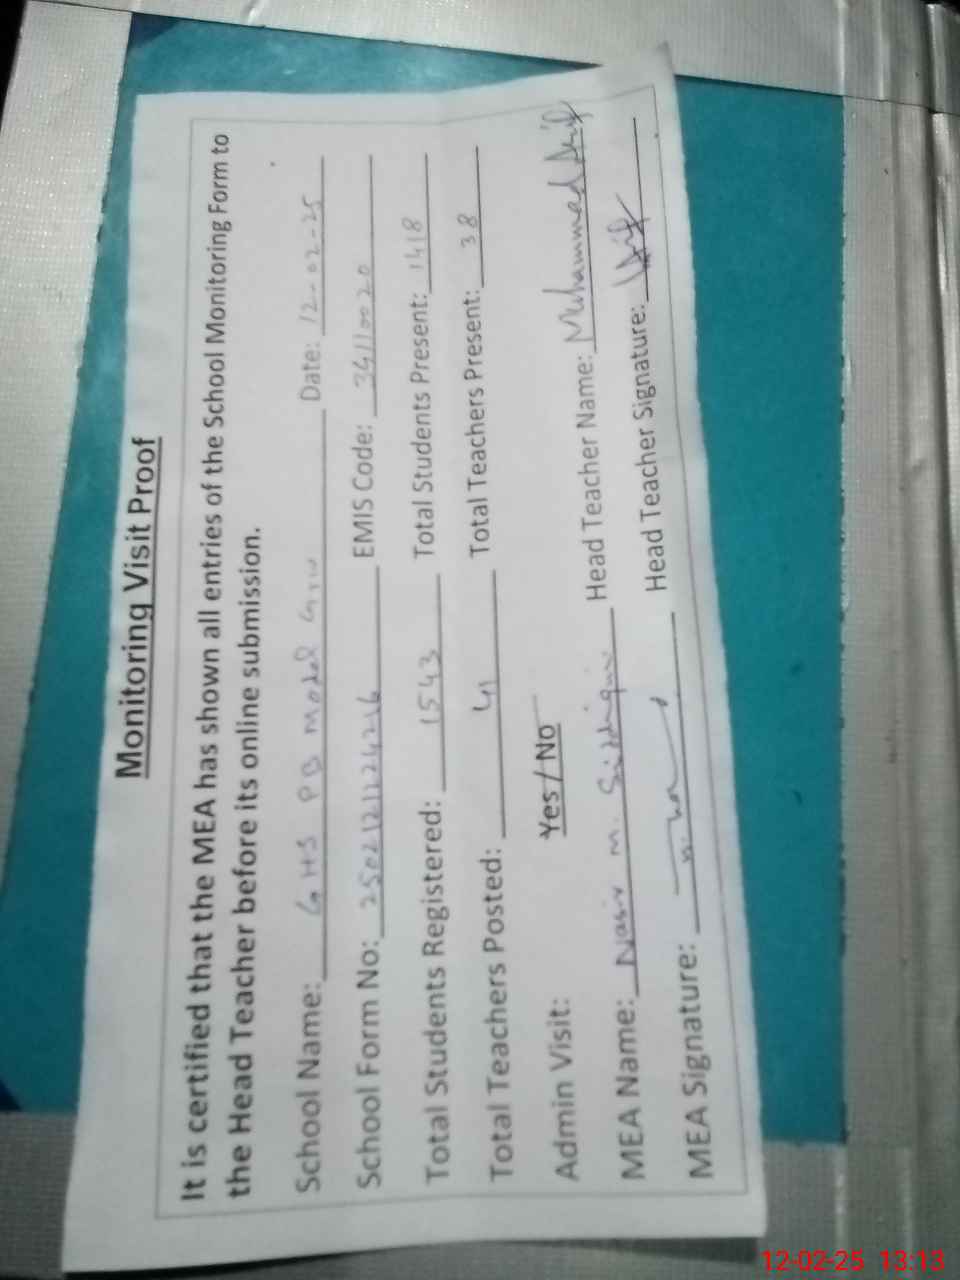 Monitoring Visit Proof
It is certified that the MEA has shown all entries of the School Monitoring Form to
the Head Teacher before its online submission.
School Name: GHS PB Model Date: 12-02-25
School Form No: EMIS Code: 34110020
Total Students Registered: 1543 Total Students Present: 1418
Total Teachers Posted: 41 Total Teachers Present: 38
Admin Visit: Yes / No
MEA Name: Nasir M. Siddiqui Head Teacher Name: Muhammad Arif
MEA Signature: Head Teacher Signature: Arif
12-02-25 13:13